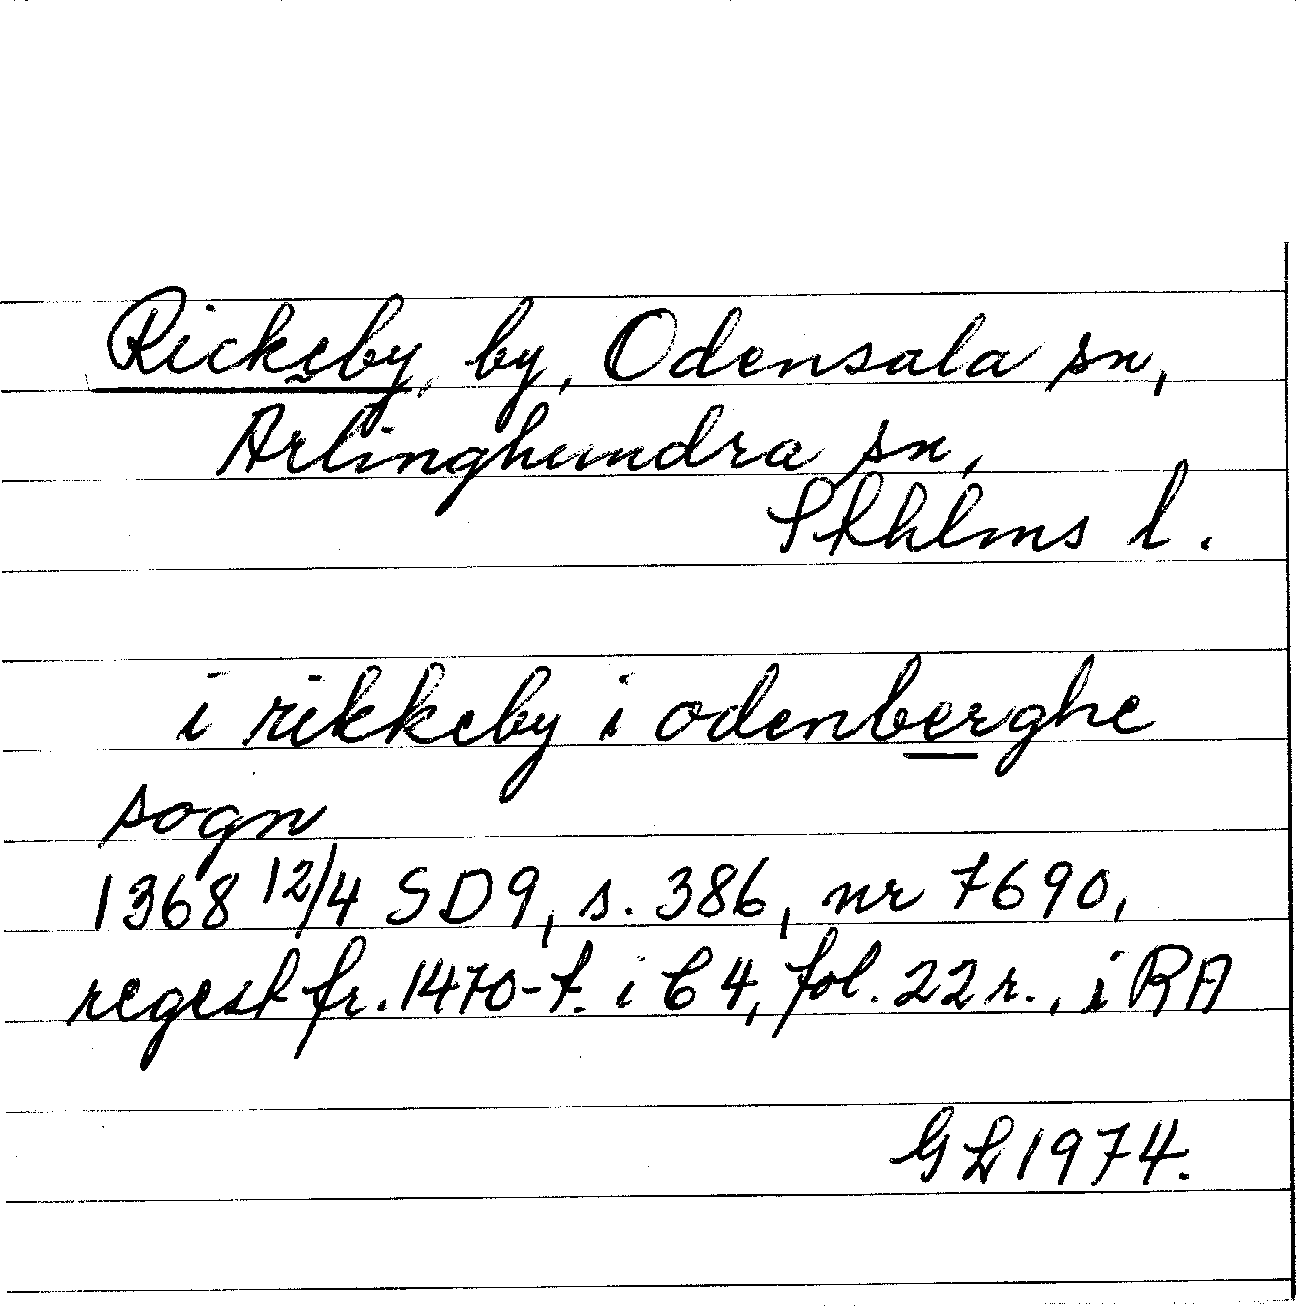 Rickeby, by, Odensala sn,
Arlinghundra sn,
Sthlms l.
i rikkeby i odenberghe
sogn
1368 12/4 SD9, s. 386, nr 7690,
regest fr. 1470-t. i C 4, fol. 22 r., i RA
GL 1974.